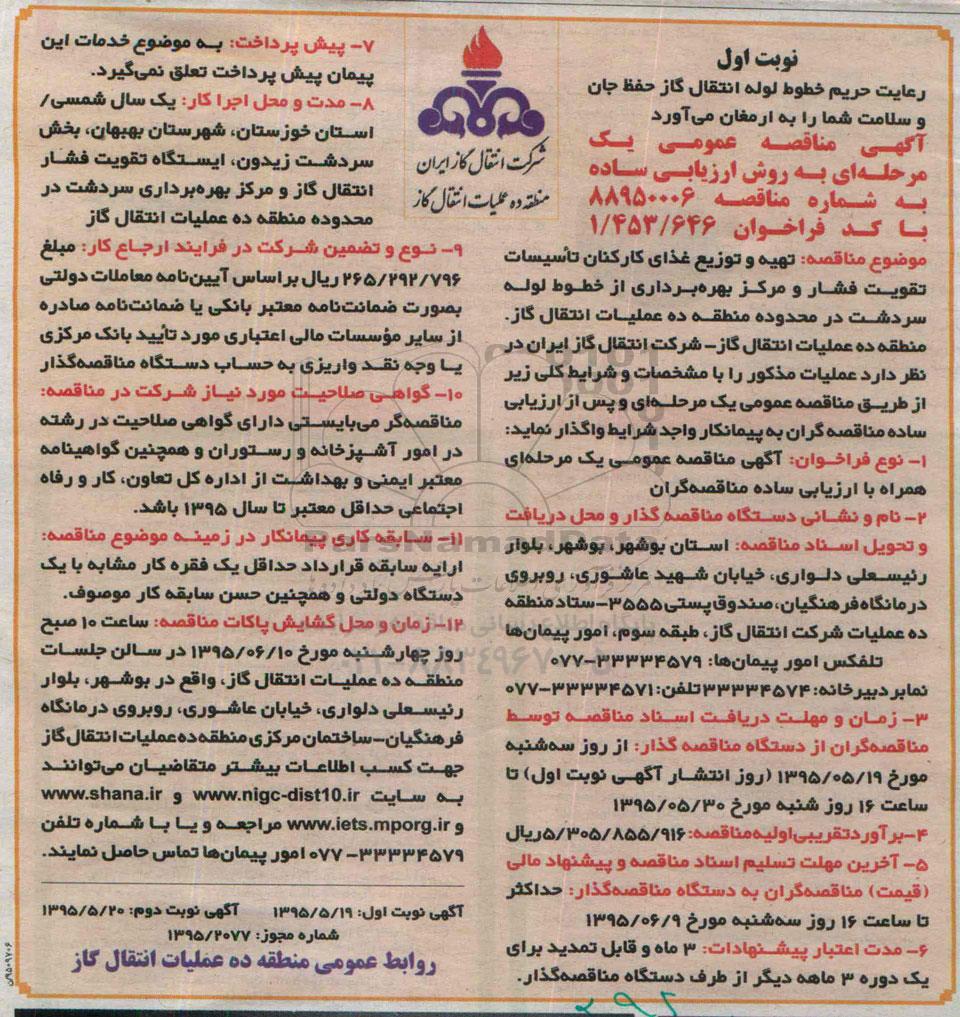 نوبت اول
رعایت حریم خطوط لوله انتقال گاز حفظ جان
و سلامت شما را به ارمغان می‌آورد
آگهی مناقصه عمومی یک
مرحله‌ای به روش ارزیابی ساده
به شماره مناقصه ۸۸۹۵۰۰۰۶
با کد فراخوان ۱/۴۵۳/۶۴۶
موضوع مناقصه: تهیه و توزیع غذای کارکنان تأسیسات
تقویت فشار و مرکز بهره‌برداری از خطوط لوله
سردشت در محدوده منطقه ده عملیات انتقال گاز.
منطقه ده عملیات انتقال گاز- شرکت انتقال گاز ایران در
نظر دارد عملیات مذکور را با مشخصات و شرایط کلی زیر
از طریق مناقصه عمومی یک مرحله‌ای و پس از ارزیابی
ساده مناقصه گران به پیمانکار واجد شرایط واگذار نماید:
۱- نوع فراخوان: آگهی مناقصه عمومی یک مرحله‌ای
همراه با ارزیابی ساده مناقصه‌گران
۲- نام و نشانی دستگاه مناقصه گذار و محل دریافت
و تحویل اسناد مناقصه: استان بوشهر، بوشهر، بلوار
رئیسعلی دلواری، خیابان شهید عاشوری، روبروی
درمانگاه فرهنگیان، صندوق پستی ۳۵۵۵- ستاد منطقه
ده عملیات شرکت انتقال گاز، طبقه سوم، امور پیمان‌ها
تلفکس امور پیمان‌ها: ۳۳۳۳۴۵۷۹-۰۷۷
نمابر دبیرخانه: ۳۳۳۳۴۵۷۴ تلفن: ۳۳۳۳۴۵۷۱-۰۷۷
۳- زمان و مهلت دریافت اسناد مناقصه توسط
مناقصه‌گران از دستگاه مناقصه گذار: از روز سه‌شنبه
مورخ ۱۳۹۵/۰۵/۱۹ (روز انتشار آگهی نوبت اول) تا
ساعت ۱۶ روز شنبه مورخ ۱۳۹۵/۰۵/۳۰
۴- برآورد تقریبی اولیه مناقصه: ۵/۳۰۵/۸۵۵/۹۱۶ ریال
۵- آخرین مهلت تسلیم اسناد مناقصه و پیشنهاد مالی
(قیمت) مناقصه‌گران به دستگاه مناقصه‌گذار: حداکثر
تا ساعت ۱۶ روز سه‌شنبه مورخ ۱۳۹۵/۰۶/۹
۶- مدت اعتبار پیشنهادات: ۳ ماه و قابل تمدید برای
یک دوره ۳ ماهه دیگر از طرف دستگاه مناقصه‌گذار.
شرکت انتقال گاز ایران
منطقه ده عملیات انتقال گاز
۷- پیش پرداخت: به موضوع خدمات این
پیمان پیش پرداخت تعلق نمی‌گیرد.
۸- مدت و محل اجرا کار: یک سال شمسی/
استان خوزستان، شهرستان بهبهان، بخش
سردشت زیدون، ایستگاه تقویت فشار
انتقال گاز و مرکز بهره‌برداری سردشت در
محدوده منطقه ده عملیات انتقال گاز
۹- نوع و تضمین شرکت در فرایند ارجاع کار: مبلغ
۲۶۵/۲۹۲/۷۹۶ ریال بر اساس آیین‌نامه معاملات دولتی
بصورت ضمانت‌نامه معتبر بانکی یا ضمانت‌نامه صادره
از سایر مؤسسات مالی اعتباری مورد تأیید بانک مرکزی
یا وجه نقد واریزی به حساب دستگاه مناقصه‌گذار
۱۰- گواهی صلاحیت مورد نیاز شرکت در مناقصه:
مناقصه‌گر می‌بایستی دارای گواهی صلاحیت در رشته
در امور آشپزخانه و رستوران و همچنین گواهینامه
معتبر ایمنی و بهداشت از اداره کل تعاون، کار و رفاه
اجتماعی حداقل معتبر تا سال ۱۳۹۵ باشد.
۱۱- سابقه کاری پیمانکار در زمینه موضوع مناقصه:
ارایه سابقه قرارداد حداقل یک فقره کار مشابه با یک
دستگاه دولتی و همچنین حسن سابقه کار موصوف.
۱۲- زمان و محل گشایش پاکات مناقصه: ساعت ۱۰ صبح
روز چهارشنبه مورخ ۱۳۹۵/۰۶/۱۰ در سالن جلسات
منطقه ده عملیات انتقال گاز، واقع در بوشهر، بلوار
رئیسعلی دلواری، خیابان عاشوری، روبروی درمانگاه
فرهنگیان- ساختمان مرکزی منطقه ده عملیات انتقال گاز
جهت کسب اطلاعات بیشتر متقاضیان می‌توانند
به سایت www.nigc-dist10.ir و www.shana.ir
و www.iets.mporg.ir مراجعه و یا با شماره تلفن
۳۳۳۳۴۵۷۹- ۰۷۷ امور پیمان‌ها تماس حاصل نمایند.
آگهی نوبت اول: ۱۳۹۵/۵/۱۹ آگهی نوبت دوم: ۱۳۹۵/۵/۲۰
شماره مجوز: ۱۳۹۵/۲۰۷۷
روابط عمومی منطقه ده عملیات انتقال گاز
ParsNamadData